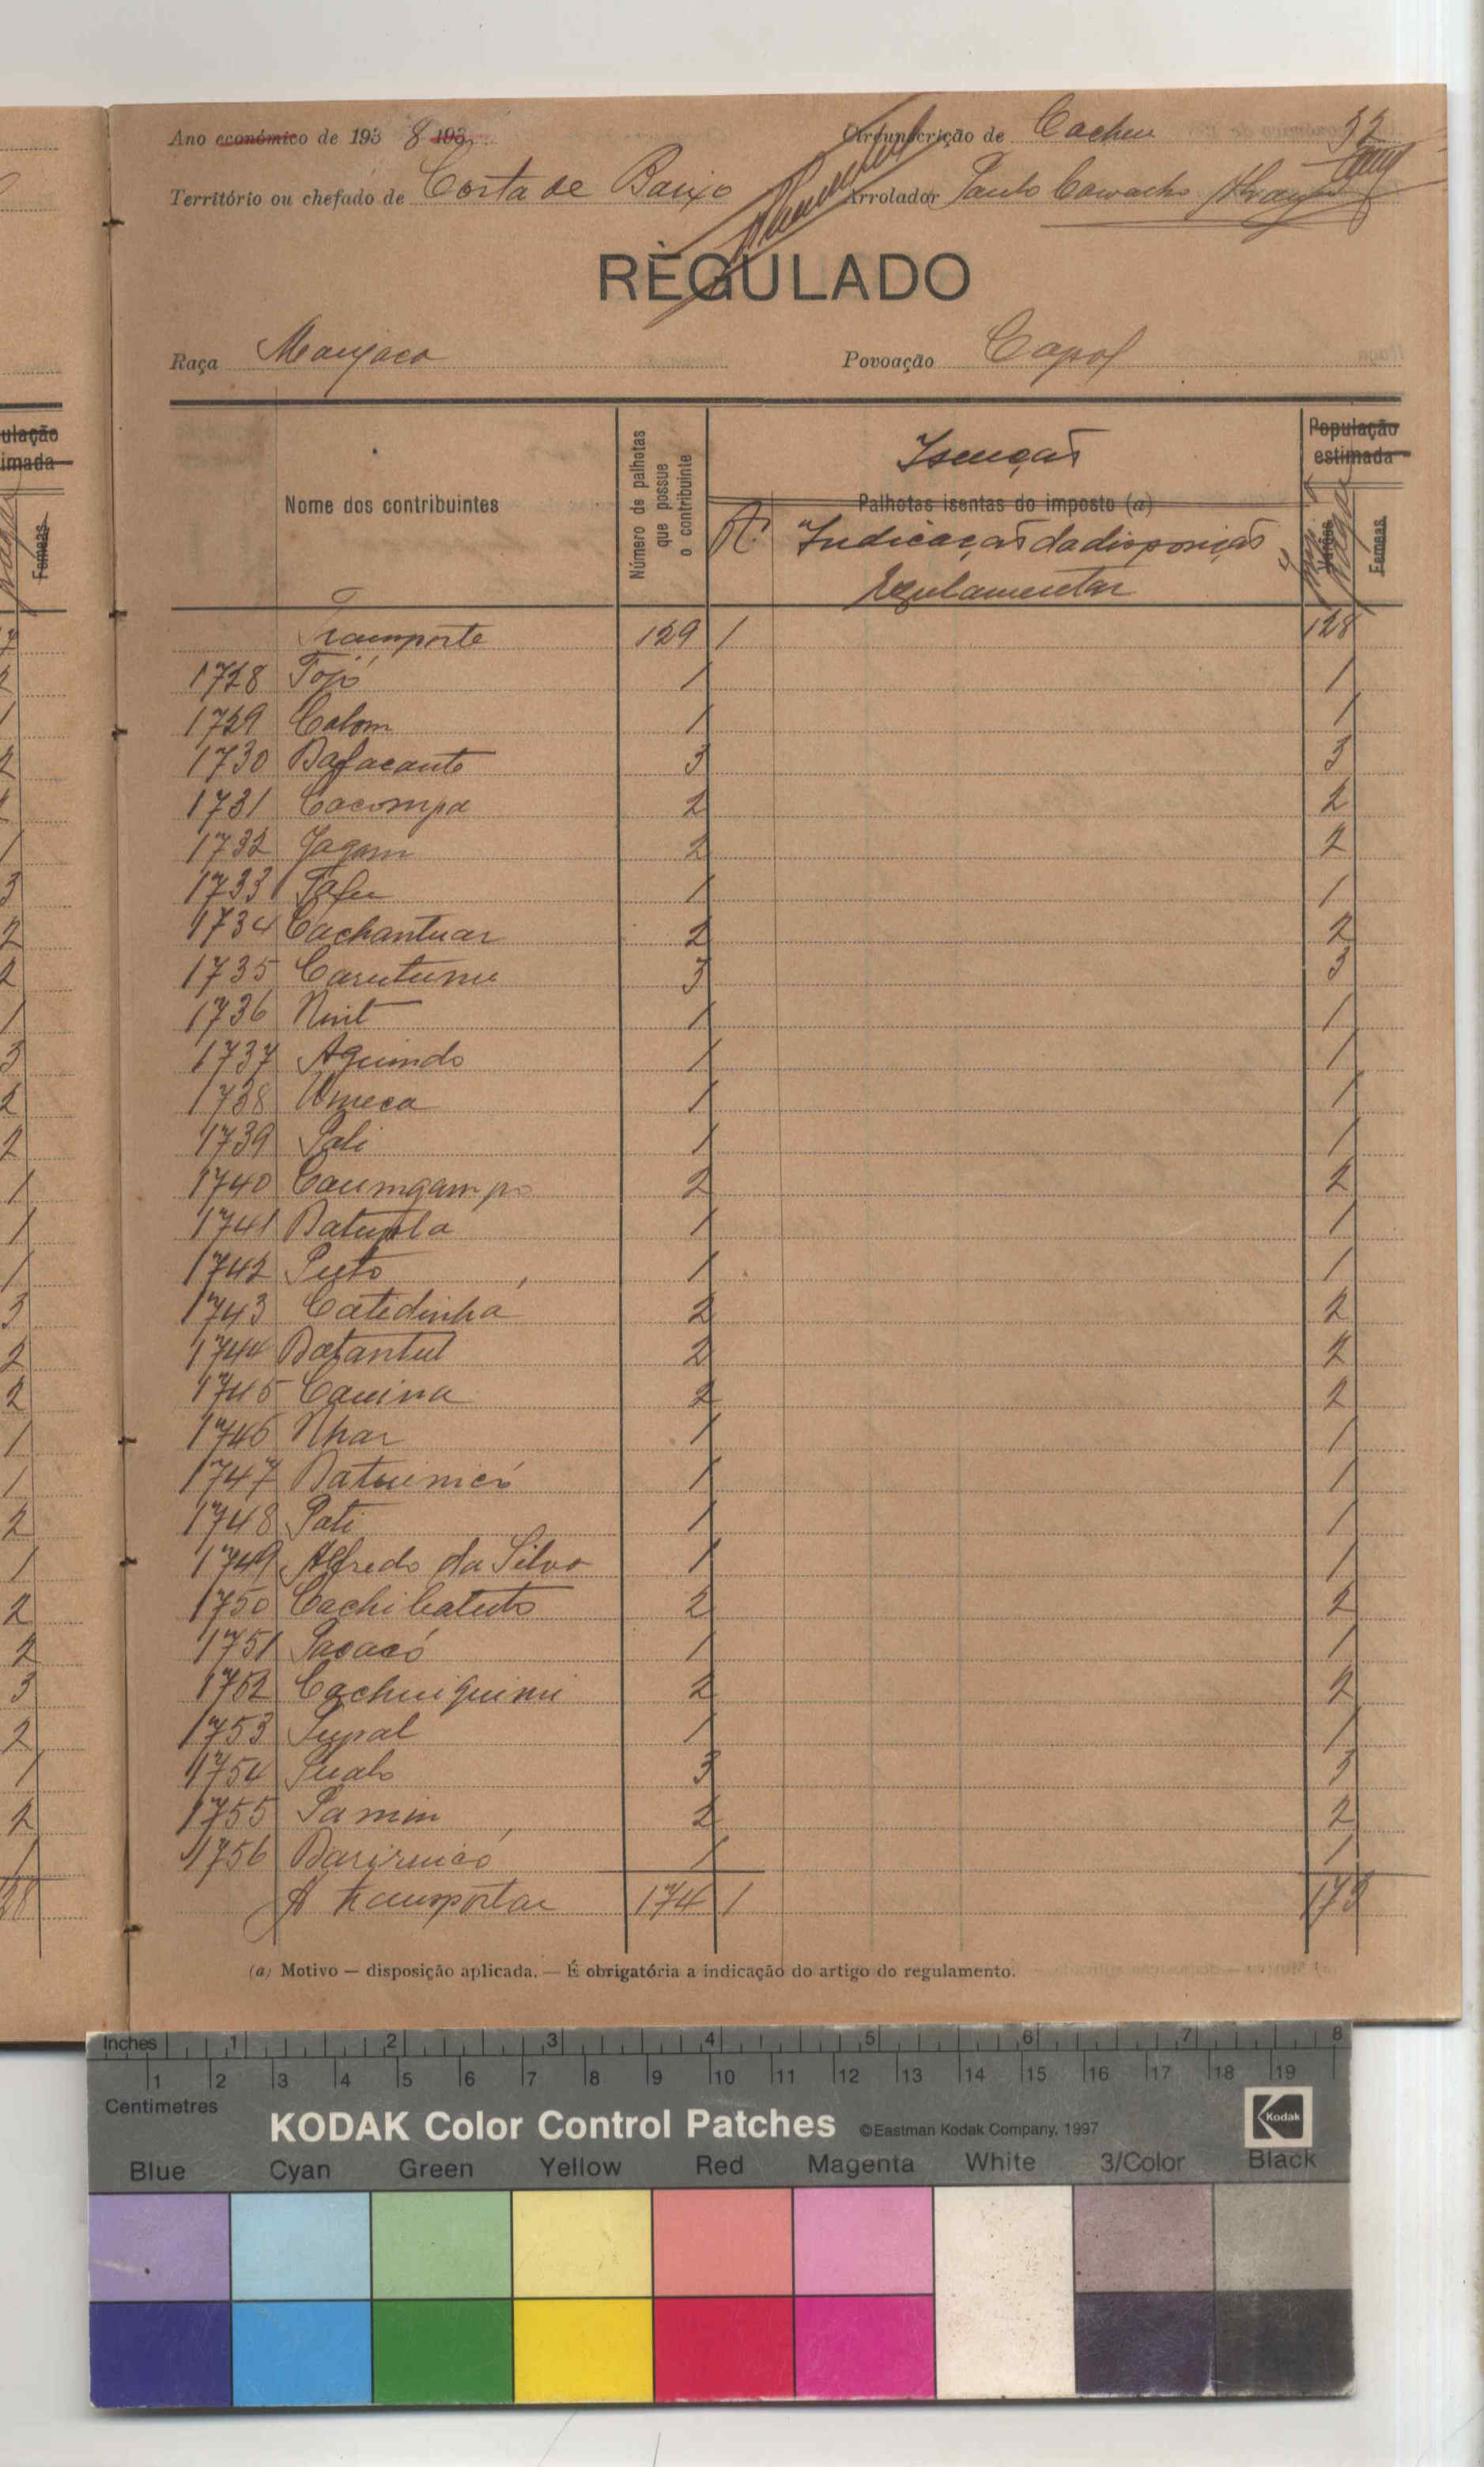 Ano económico de 193 8 193
Circunscrição de Cacheu 32
Território ou chefado de Costa de Baixo
Arrolador Paulo
REGULADO
Raça Manjaco
Povoação Capol
Nome dos contribuintes
Número de palhotas que possue o contribuinte
Isenção
Palhotas isentas do imposto (a)
Indicação da disposição
regulamentar
População estimada
Femeas
Transporte 129 1 128
1728 Tojó 1 1
1729 Calom 1 1
1730 Bafacante 3 3
1731 Cacompa 2 2
1732 Jagam 2 2
1733 Tafu 1 1
1734 Cachantuar 2 2
1735 Carutumu 3 3
1736 Nint 1 1
1737 Aguindo 1 1
1738 Umeca 1 1
1739 Pali 1 1
1740 Caumgampo 2 2
1741 1 1
1742 Puto 1 1
1743 Catidinha 2 2
1744 Batantul 2 2
1745 Cauina 2 2
1746 Nhar 1 1
1747 Batuinicó 1 1
1748 Pati 1 1
1749 Alfredo da Silva 1 1
1750 Cachicatuto 2 2
1751 1 1
1752 Cachuiguini 2 2
1753 1 1
1754 3 3
1755 Samin 2 2
1756 1 1
A transportar 174 1 173
(a) Motivo — disposição aplicada. — É obrigatória a indicação do artigo do regulamento.
Inches 1 2 3 4 5 6 7 8
1 2 3 4 5 6 7 8 9 10 11 12 13 14 15 16 17 18 19
Centimetres
KODAK Color Control Patches ©Eastman Kodak Company, 1997 Kodak
Blue Cyan Green Yellow Red Magenta White 3/Color Black